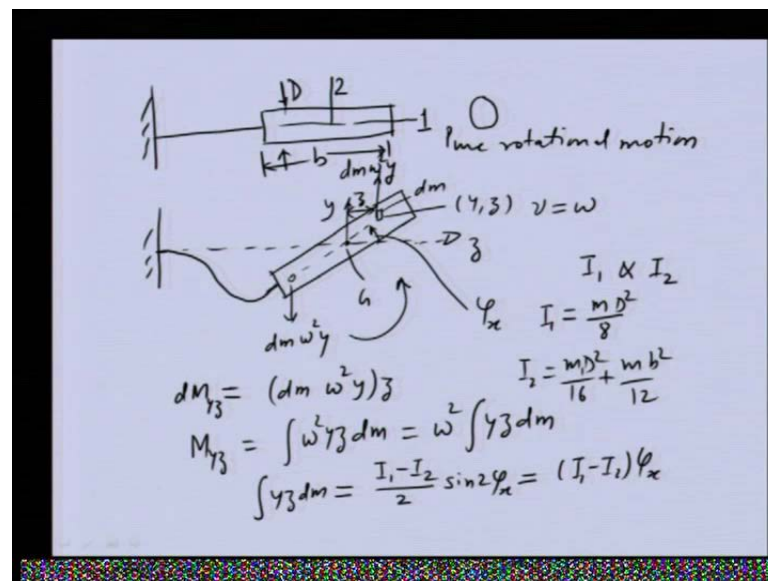 D 2
1
b
Pure rotational motion
dmω²y
dm
y z
(y,z) ν=ω
z
G
φₓ
dmω²y
I₁ & I₂
I₁ = mD²/8
I₂ = mD²/16 + mb²/12
dM_yz = (dm ω²y)z
M_yz = ∫ω²yz dm = ω²∫yz dm
∫yz dm = (I₁-I₂)/2 sin2φₓ = (I₁-I₂)φₓ